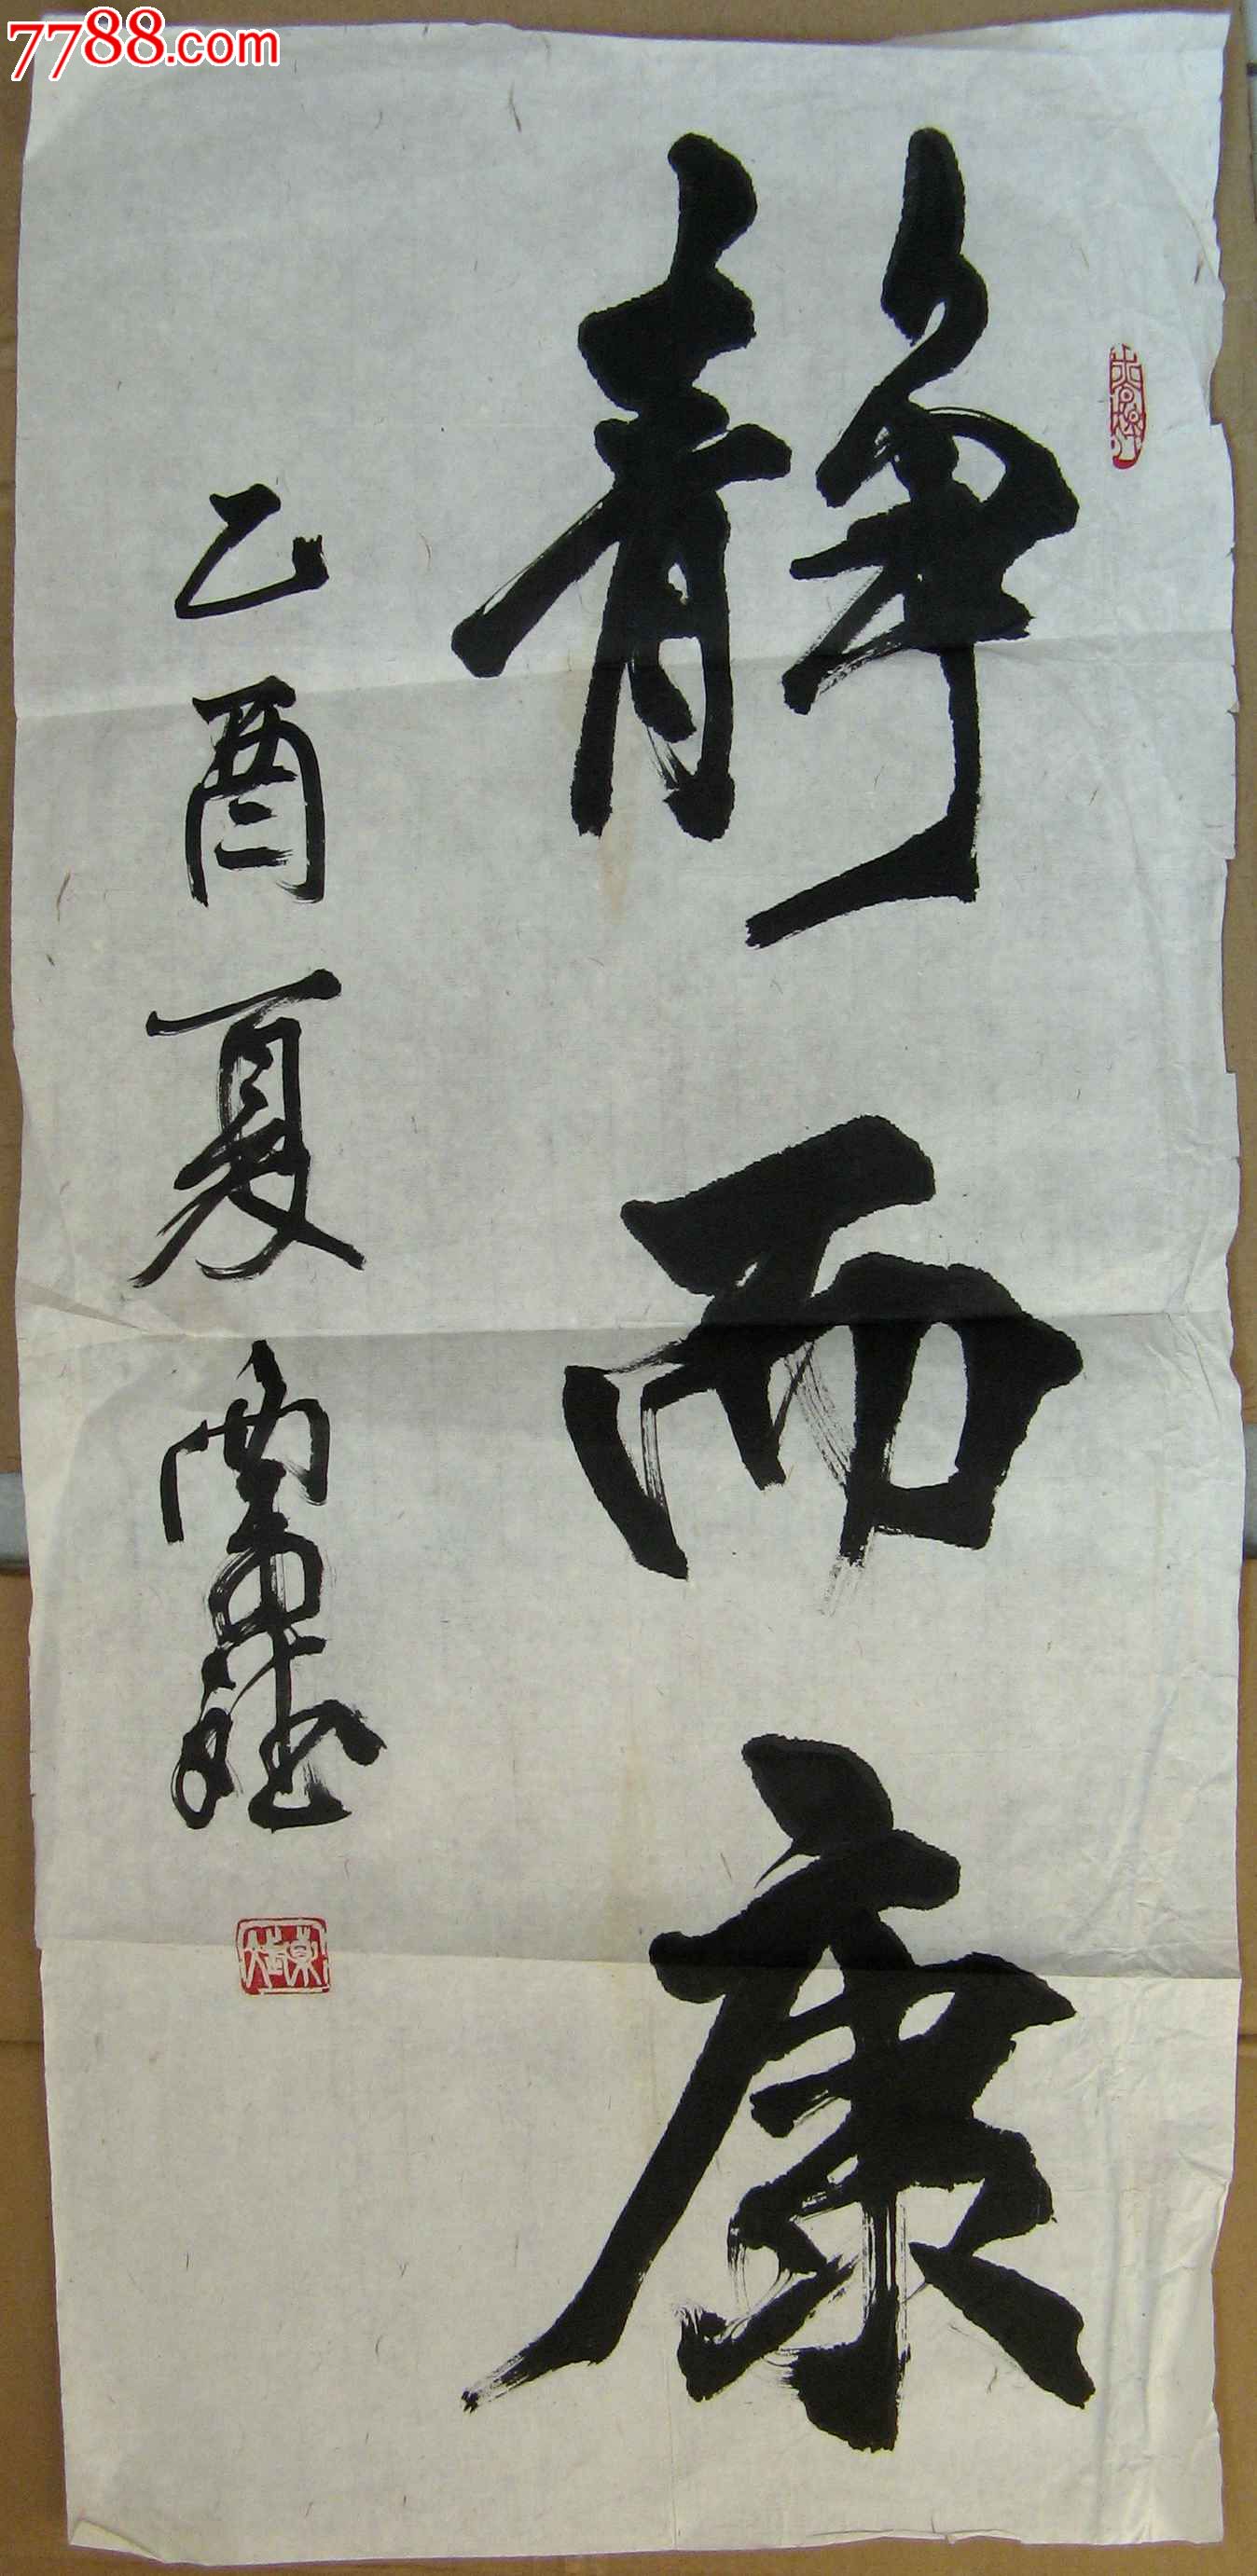 7788.com
静而康
乙酉夏